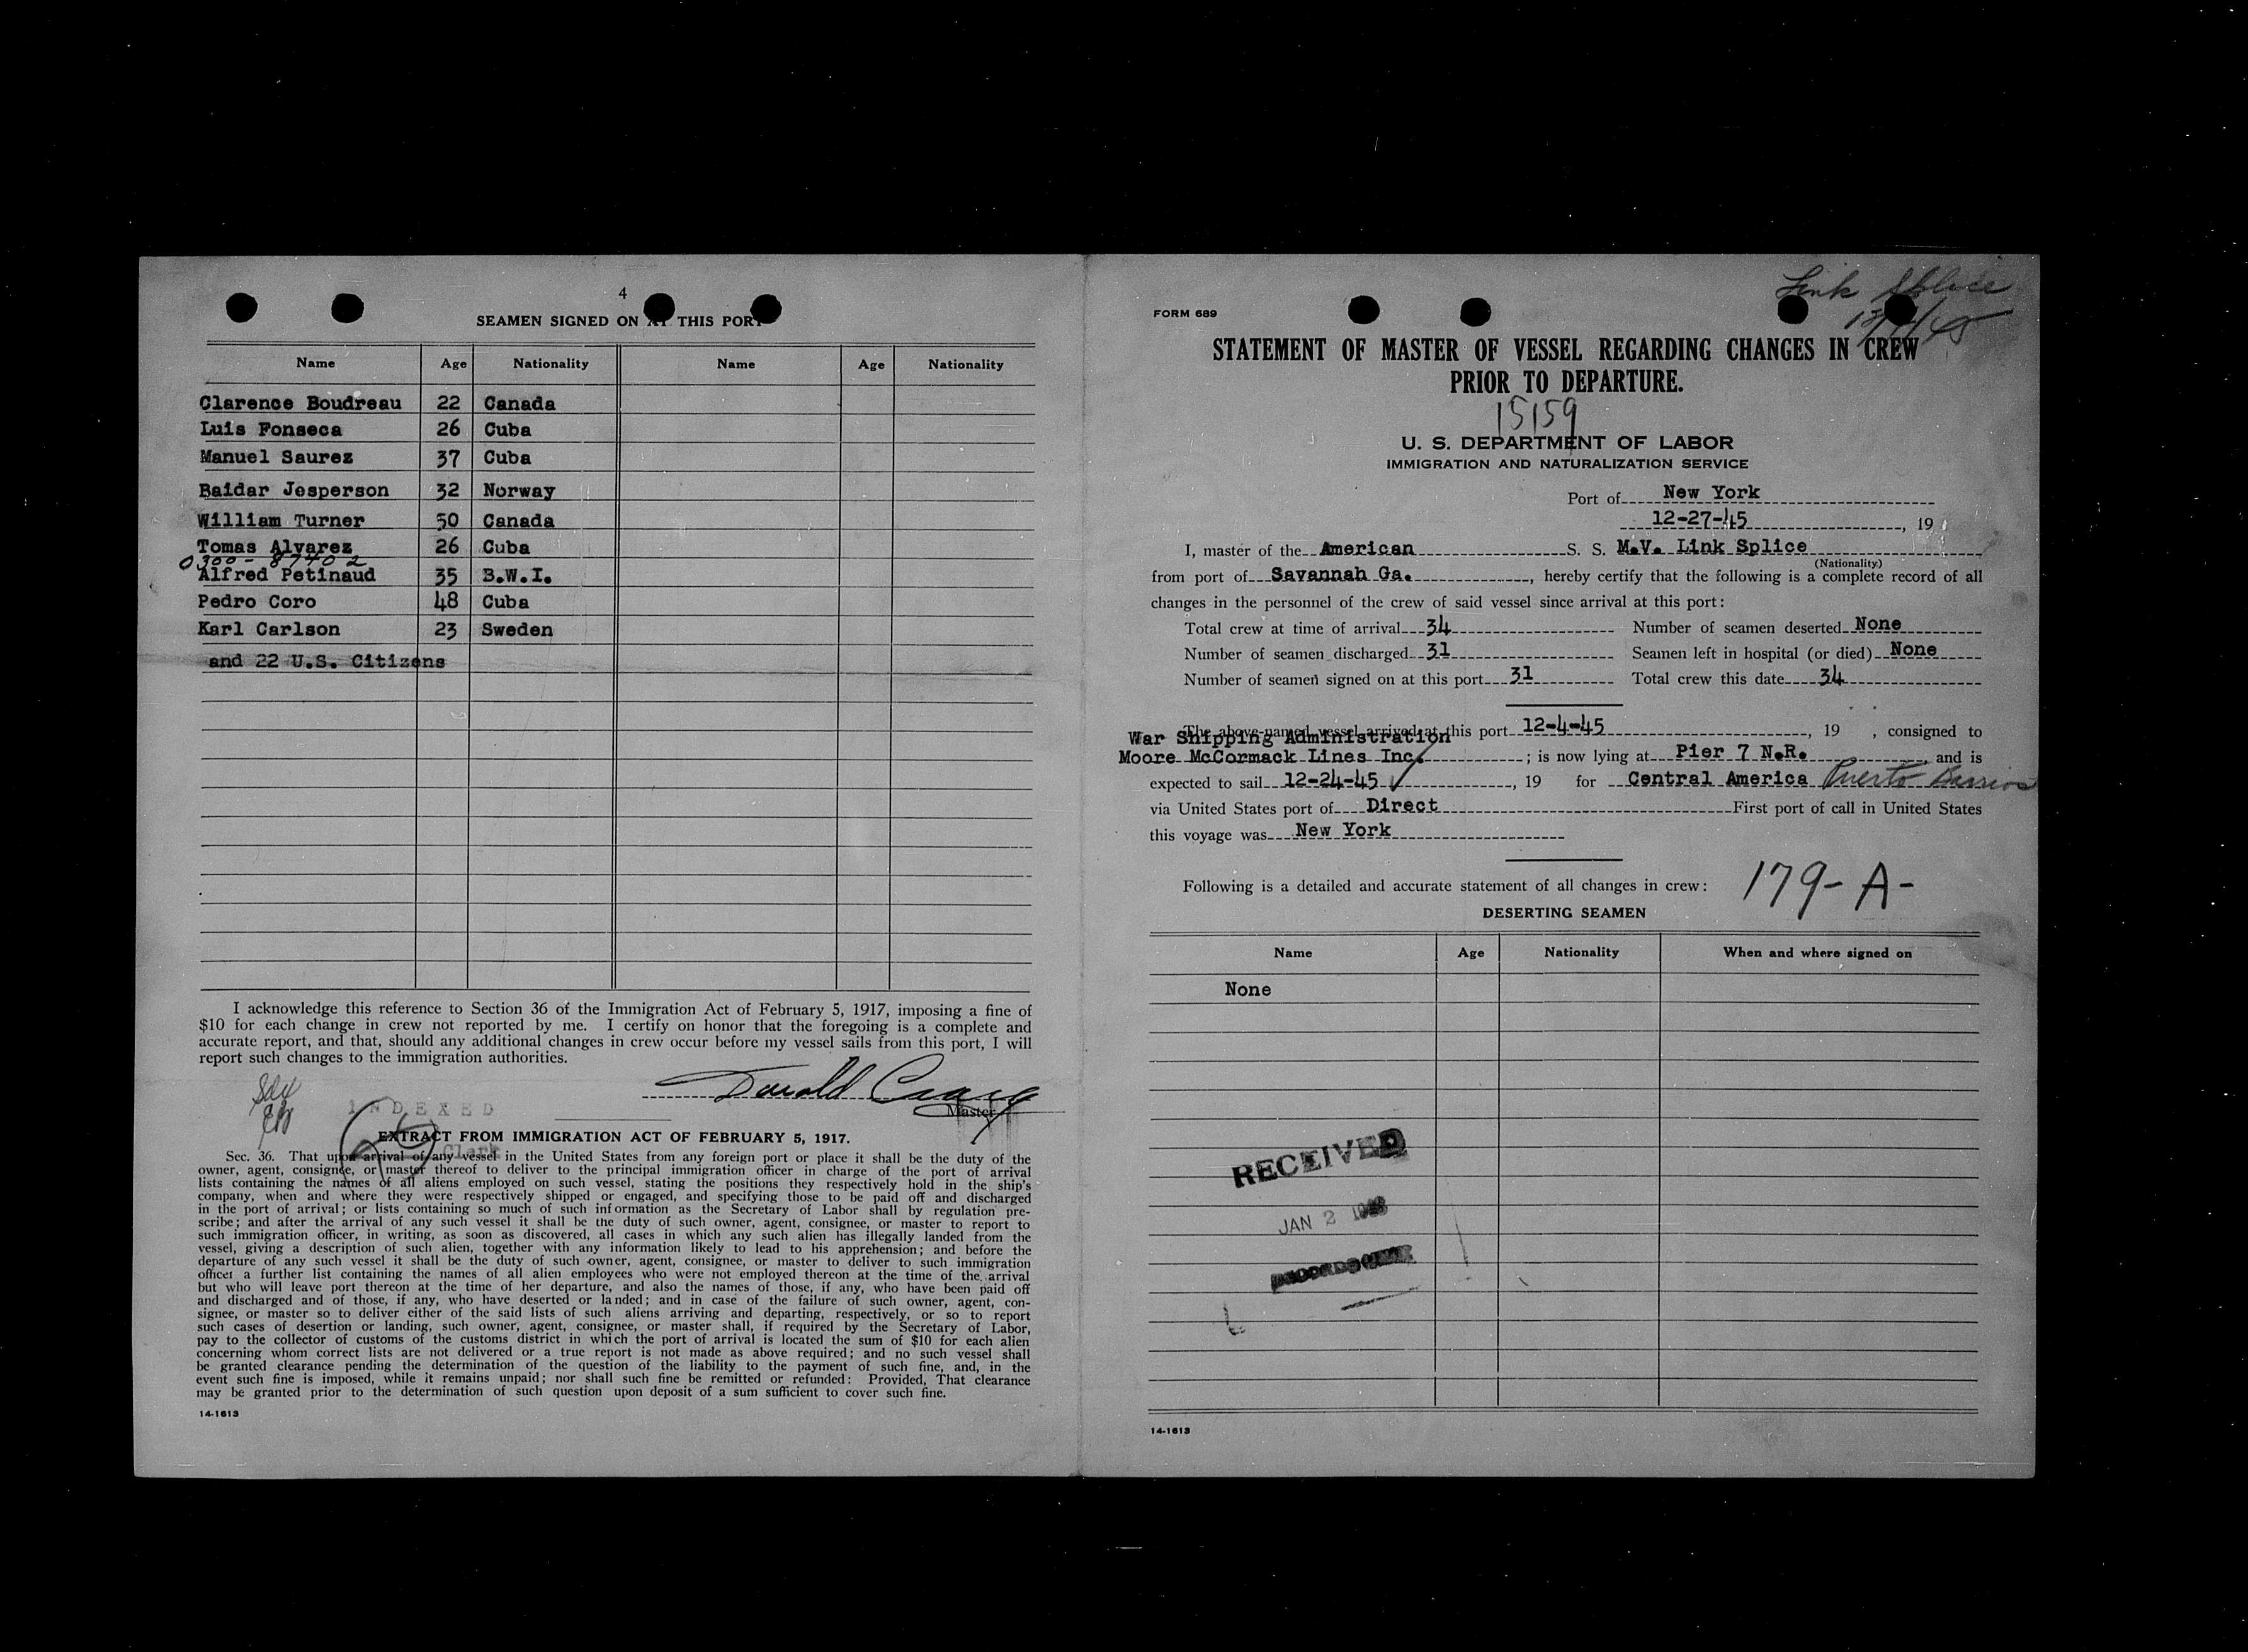 4
SEAMEN SIGNED ON AT THIS PORT
Name Age Nationality Name Age Nationality
Clarence Boudreau 22 Canada
Luis Fonseca 26 Cuba
Manuel Saurez 37 Cuba
Baidar Jesperson 32 Norway
William Turner 50 Canada
Tomas Alvarez 26 Cuba
0300-87402
Alfred Petinaud 35 B.W.I.
Pedro Coro 48 Cuba
Karl Carlson 23 Sweden
and 22 U.S. Citizens
I acknowledge this reference to Section 36 of the Immigration Act of February 5, 1917, imposing a fine of
$10 for each change in crew not reported by me. I certify on honor that the foregoing is a complete and
accurate report, and that, should any additional changes in crew occur before my vessel sails from this port, I will
report such changes to the immigration authorities.
Master
INDEXED
Clerk
EXTRACT FROM IMMIGRATION ACT OF FEBRUARY 5, 1917.
Sec. 36. That upon arrival of any vessel in the United States from any foreign port or place it shall be the duty of the
owner, agent, consignee, or master thereof to deliver to the principal immigration officer in charge of the port of arrival
lists containing the names of all aliens employed on such vessel, stating the positions they respectively hold in the ship's
company, when and where they were respectively shipped or engaged, and specifying those to be paid off and discharged
in the port of arrival; or lists containing so much of such information as the Secretary of Labor shall by regulation pre-
scribe; and after the arrival of any such vessel it shall be the duty of such owner, agent, consignee, or master to report to
such immigration officer, in writing, as soon as discovered, all cases in which any such alien has illegally landed from the
vessel, giving a description of such alien, together with any information likely to lead to his apprehension; and before the
departure of any such vessel it shall be the duty of such owner, agent, consignee, or master to deliver to such immigration
officer a further list containing the names of all alien employees who were not employed thereon at the time of the arrival
but who will leave port thereon at the time of her departure, and also the names of those, if any, who have been paid off
and discharged and of those, if any, who have deserted or landed; and in case of the failure of such owner, agent, con-
signee, or master so to deliver either of the said lists of such aliens arriving and departing, respectively, or so to report
such cases of desertion or landing, such owner, agent, consignee, or master shall, if required by the Secretary of Labor,
pay to the collector of customs of the customs district in which the port of arrival is located the sum of $10 for each alien
concerning whom correct lists are not delivered or a true report is not made as above required; and no such vessel shall
be granted clearance pending the determination of the question of the liability to the payment of such fine, and, in the
event such fine is imposed, while it remains unpaid; nor shall such fine be remitted or refunded: Provided, That clearance
may be granted prior to the determination of such question upon deposit of a sum sufficient to cover such fine.
14-1613
Link Splice
FORM 689
STATEMENT OF MASTER OF VESSEL REGARDING CHANGES IN CREW
PRIOR TO DEPARTURE.
15159
U. S. DEPARTMENT OF LABOR
IMMIGRATION AND NATURALIZATION SERVICE
Port of New York
12-27-45, 19
I, master of the American S. S. M.V. Link Splice
(Nationality)
from port of Savannah Ga., hereby certify that the following is a complete record of all
changes in the personnel of the crew of said vessel since arrival at this port:
Total crew at time of arrival 34 Number of seamen deserted None
Number of seamen discharged 31 Seamen left in hospital (or died) None
Number of seamen signed on at this port 31 Total crew this date 34
The above-named vessel arrived at this port 12-4-45, 19 , consigned to
War Shipping Administration
Moore McCormack Lines Inc. ; is now lying at Pier 7 N.R. and is
expected to sail 12-24-45, 19 for Central America Puerto Barrios
via United States port of Direct First port of call in United States
this voyage was New York
Following is a detailed and accurate statement of all changes in crew:
179-A-
DESERTING SEAMEN
Name Age Nationality When and where signed on
None
RECEIVED
JAN 2
14-1613